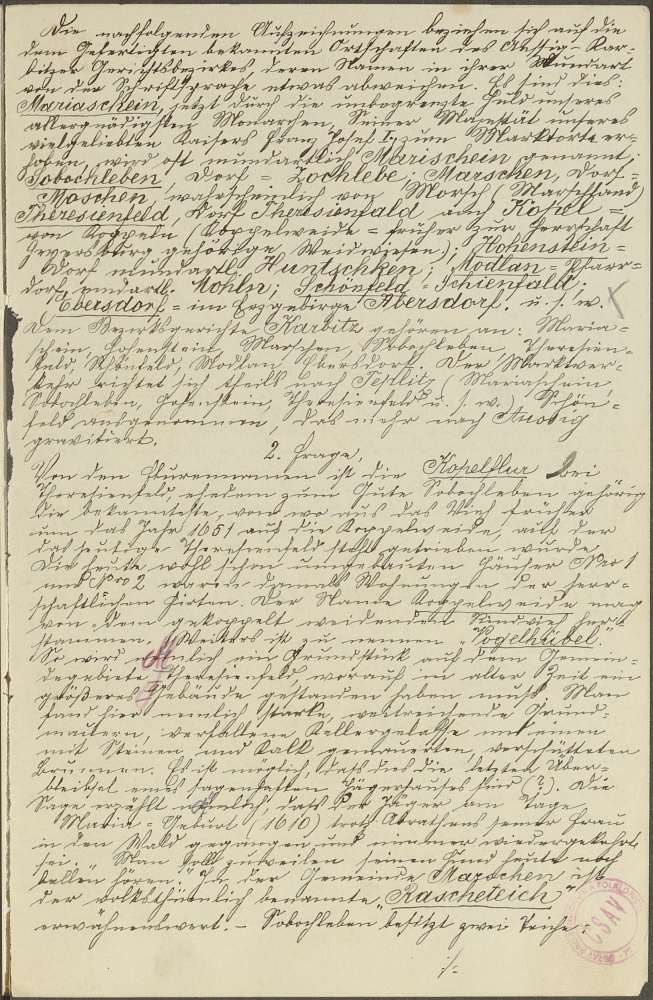 Die nachfolgenden Aufzeichnungen beziehen sich auf die
dem Gefertigten bekannten Ortschaften des Aussig-Kar-
bitzer Gerichtsbezirkes, deren Namen in ihrer Mundart
von der Schriftsprache etwas abweichen. Es sind dies:
Mariaschein, jetzt durch die unbegrenzte Huld unseres
allergnädigsten Monarchen, Seiner Majestät unseres
vielgeliebten Kaisers Franz Josef I., zum Marktorte er-
hoben, wird oft mundartlich Marischein genannt;
Sobochleben, Dorf = Zochlebe; Marschen, Dorf =
Moschen, wahrscheinlich von Morsch (Marschland)
Theresienfeld, Dorf Theresienfald, auch Kopel =
von Koppeln (Koppelweide = früher zur Herrschaft
Geyersburg gehörige Weidwiesen.); Hohenstein =
Dorf mundartl. Huntschken; Modlan = Pfarr-
dorf, mundartl. Mohln; Schönfeld = Schienfald;
Ebersdorf = im Erzgebirge Abersdorf. u. s. w.
Dem Bezirksgerichte Karbitz gehören an: Maria-
schein, Hohenstein, Marschen, Sobochleben, Theresien-
feld, Schönfeld, Modlan, Ebersdorf. Der Marktver-
kehr richtet sich theils nach Teplitz (Mariaschein,
Sobochleben, Hohenstein, Theresienfeld u. s. w.) Schön-
feld ausgenommen, das mehr nach Aussig
gravitiert.
2. Frage.
Von den Flurennamen ist die Kopelflur bei
Theresienfeld, ehedem zum Gute Sobochleben gehörig
die bekannteste, von wo aus das Vieh früher
um das Jahr 1651 auf die Koppelweide, auf der
das heutige Theresienfeld steht, getrieben wurde.
Die heute wohl schon umgebauten Häuser Nro 1
und Nro 2 waren damals Wohnungen der herr-
schaftlichen Hirten. Der Name Koppelweide mag
von dem gekoppelt weidenden Rindvieh her-
stammen. Weiters ist zu nennen "Vogelhübel."
So wird nämlich ein Grundstück auf dem Gemein-
degebiete Theresienfeld, worauf in alter Zeit ein
größeres Gebäude gestanden haben muß. Man
fand hier nemlich starke, weitreichende Grund-
mauern, verfallene Kellergelasse und einen
mit Steinen und Kalk gemauerten, verschütteten
Brunnen. Es ist möglich, dass dies die letzten Über-
bleibsel eines sagenhaften Jägerhauses sind (?). Die
Sage erzählt nämlich, dass der Jäger am Tage
Maria-Geburt (1610) trotz Abrathens seiner Frau
in den Wald gegangen und nimmer wiedergekehrt
sei. Man soll zuweilen seinen Hund heute noch
bellen hören." In der Gemeinde Marschen ist
der volksthümlich benannte "Rascheteich"
erwähnenswert. - Sobochleben besitzt zwei Teiche:
·/.
ČSAV